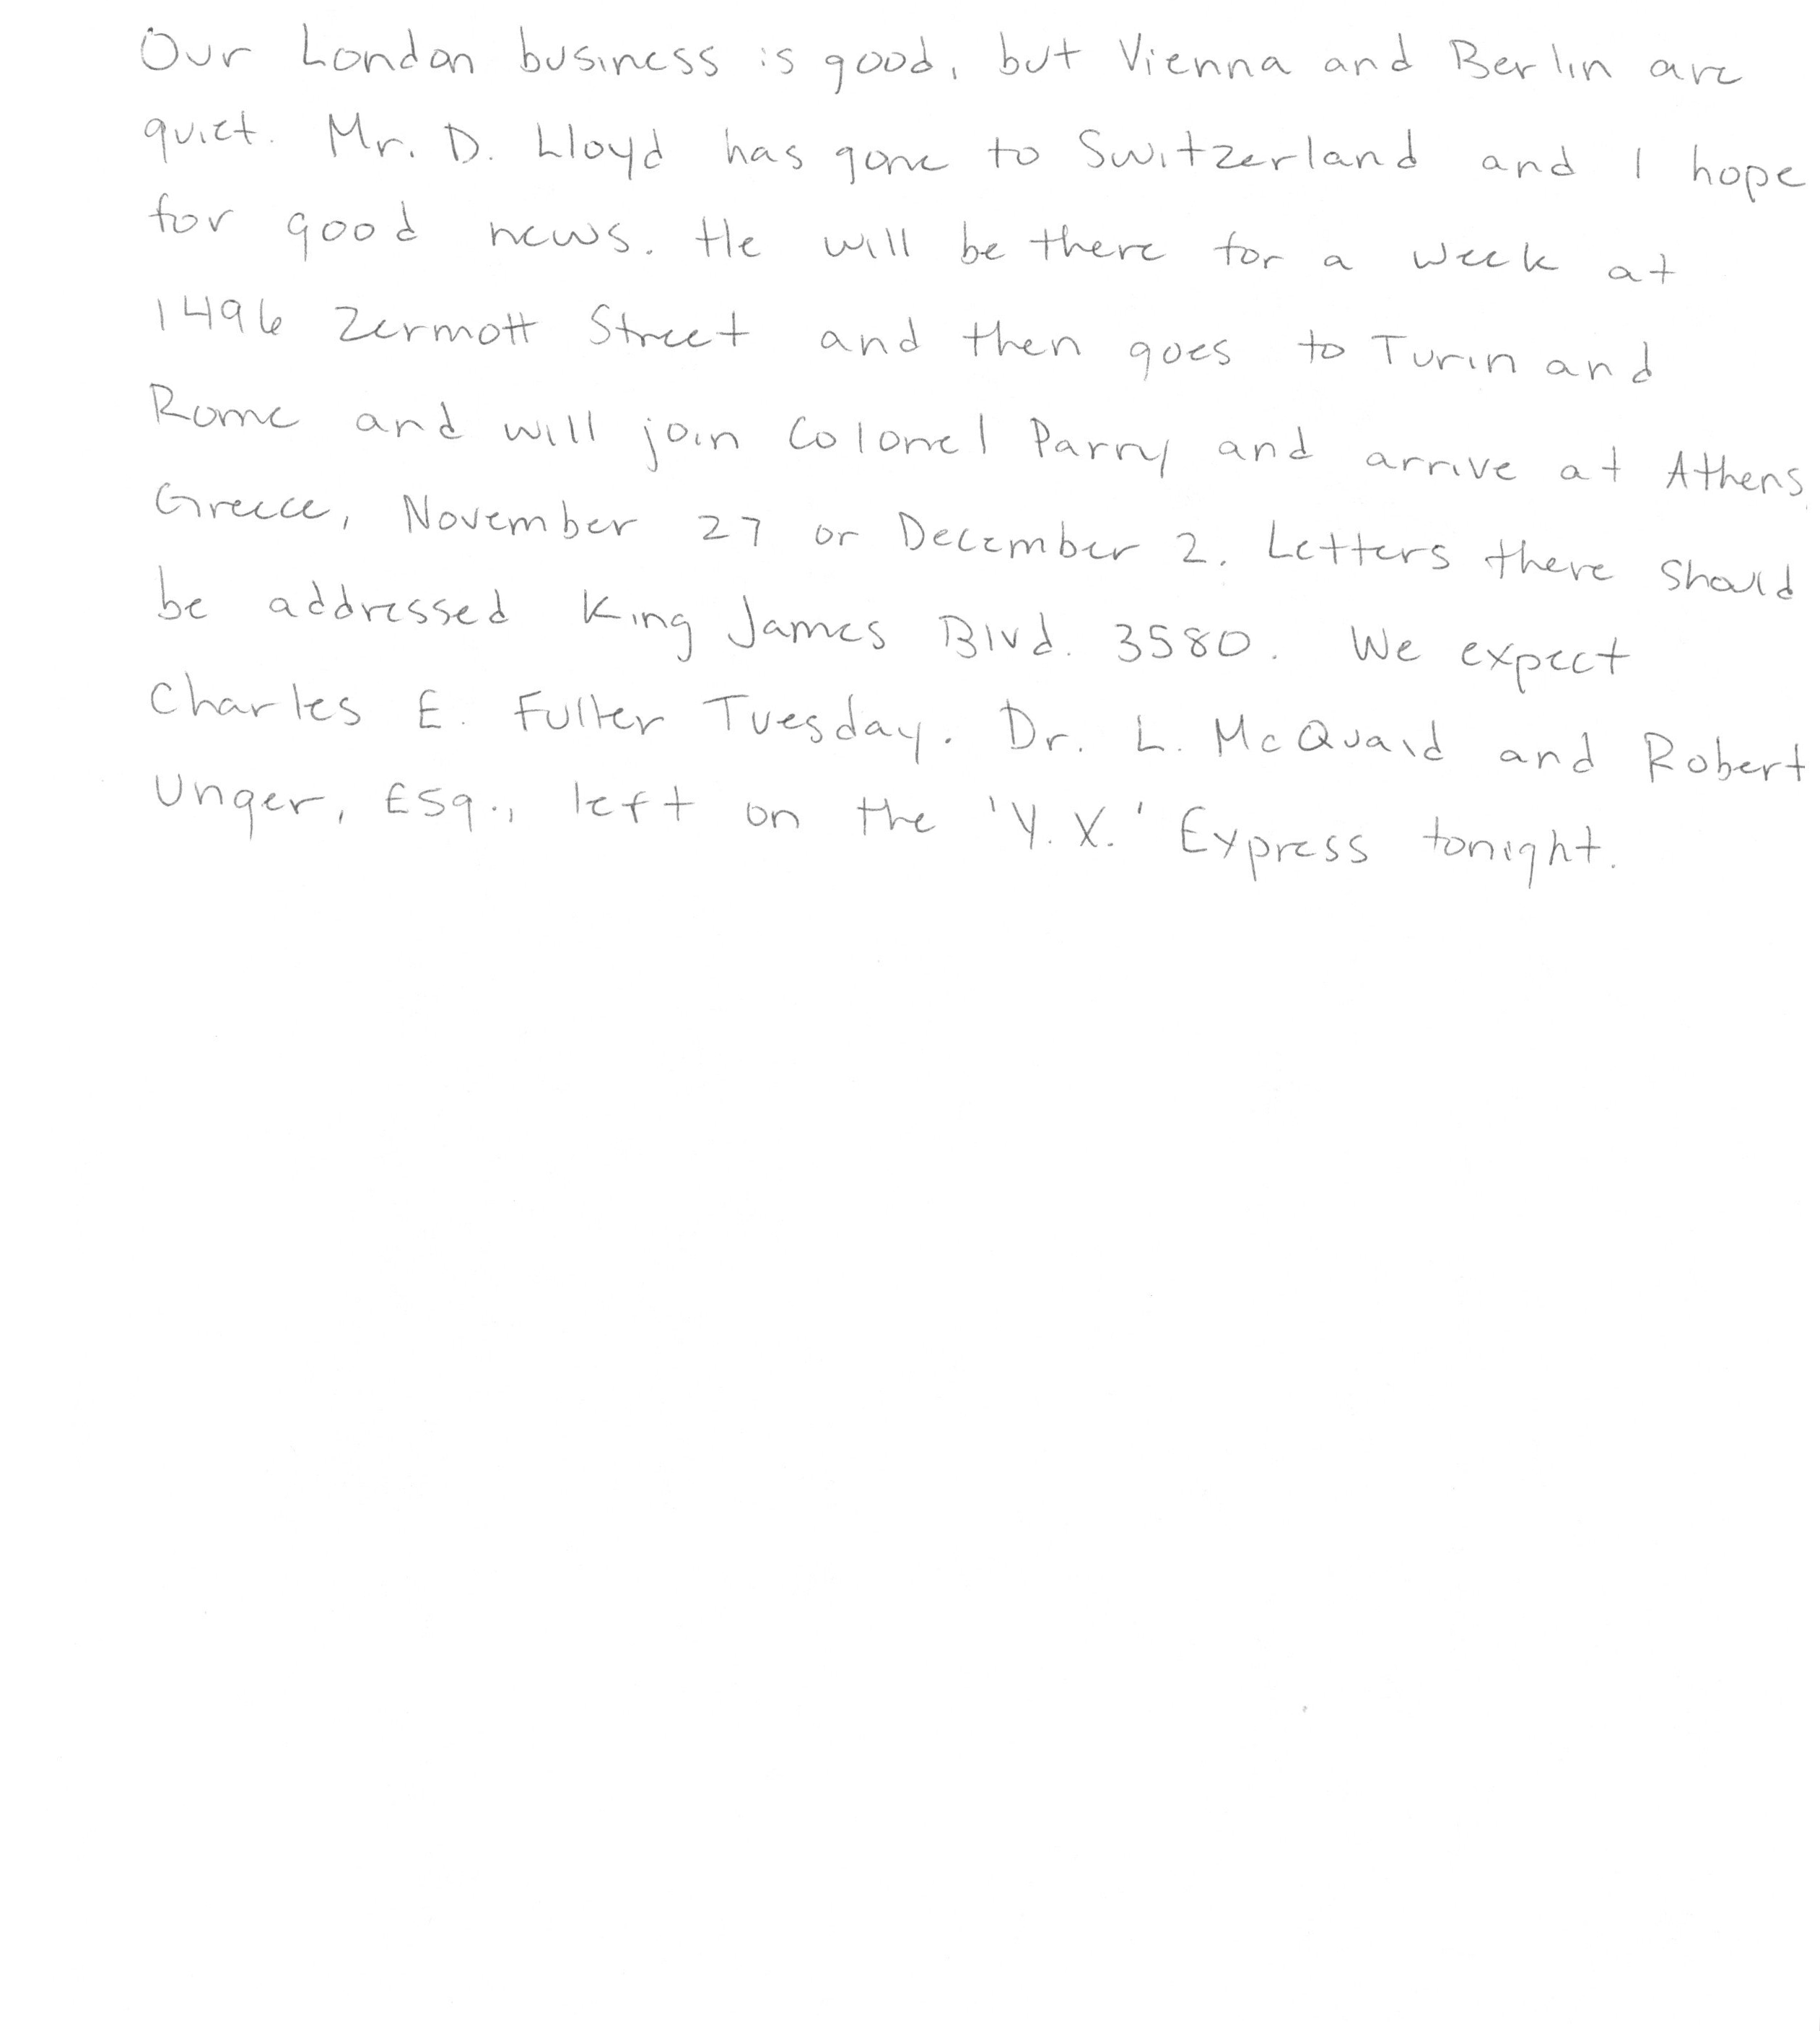 Our London business is good, but Vienna and Berlin are
quiet. Mr. D. Lloyd has gone to Switzerland and I hope
for good news. He will be there for a week at
1496 Zermott Street and then goes to Turin and
Rome and will join Colonel Parry and arrive at Athens,
Greece, November 27 or December 2. Letters there should
be addressed King James Blvd. 3580. We expect
Charles E. Fuller Tuesday. Dr. L. McQuaid and Robert
Unger, Esq., left on the 'Y.X.' Express tonight.